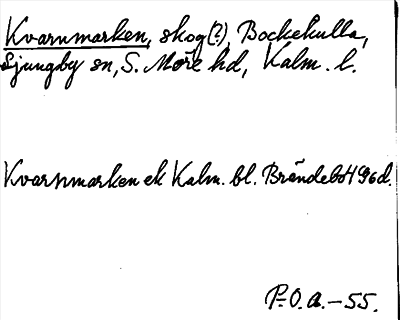 Kvarnmarken, skog(?), Bockekulla,
Ljungby sn, S. Möre hd, Kalm. l.
Kvarnmarken ek Kalm. bl. Brändebo 4 96 d.
P.O.A. – 55.